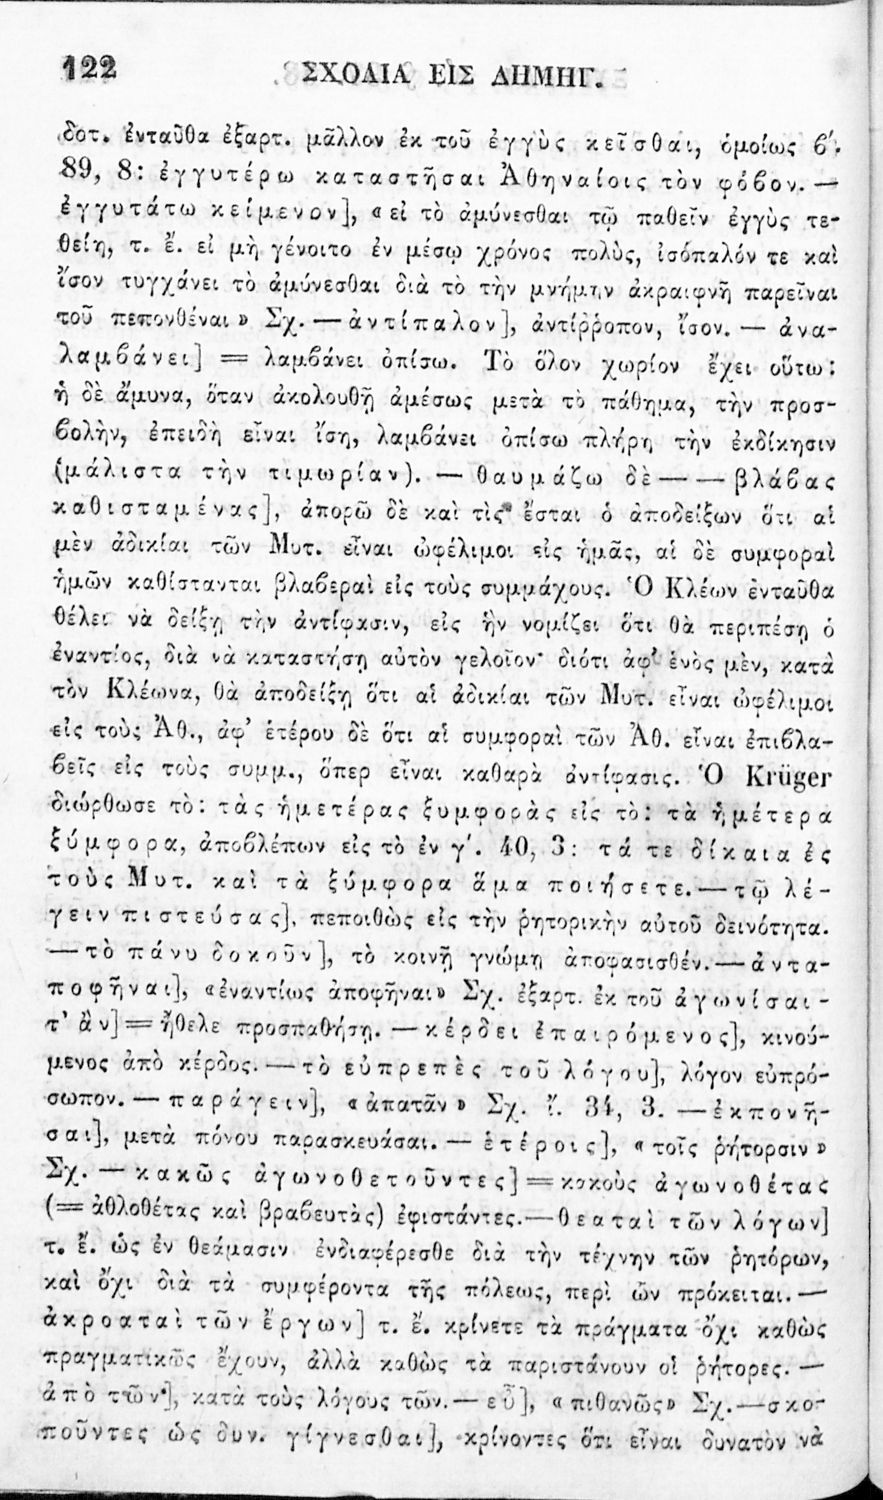 122 ΣΧΟΛΙΑ ΕΙΣ ΔΗΜΗΓ.
δοτ. ἐνταῦθα ἐξαρτ. μᾶλλον ἐκ τοῦ ἐγγὺς κεῖσθαι, ὁμοίως β΄.
89, 8: ἐγγυτέρω καταστῆσαι Ἀθηναίοις τὸν φόβον. —
ἐγγυτάτω κείμενον], «εἰ τὸ ἀμύνεσθαι τῷ παθεῖν ἐγγὺς τε-
θείη, τ. ἔ. εἰ μὴ γένοιτο ἐν μέσῳ χρόνος πολὺς, ἰσόπαλόν τε καὶ
ἴσον τυγχάνει τὸ ἀμύνεσθαι διὰ τὸ τὴν μνήμην ἀκραιφνῆ παρεῖναι
τοῦ πεπονθέναι» Σχ. — ἀντίπαλον], ἀντίῤῥοπον, ἴσον. — ἀνα-
λαμβάνει] = λαμβάνει ὀπίσω. Τὸ ὅλον χωρίον ἔχει οὕτω:
ἡ δὲ ἄμυνα, ὅταν ἀκολουθῇ ἀμέσως μετὰ τὸ πάθημα, τὴν προσ-
βολὴν, ἐπειδὴ εἶναι ἴση, λαμβάνει ὀπίσω πλήρη τὴν ἐκδίκησιν
(μάλιστα τὴν τιμωρίαν). — θαυμάζω δὲ — — βλάβας
καθισταμένας], ἀπορῶ δὲ καὶ τὶς ἔσται ὁ ἀποδείξων ὅτι αἱ
μὲν ἀδικίαι τῶν Μυτ. εἶναι ὠφέλιμοι εἰς ἡμᾶς, αἱ δὲ συμφοραὶ
ἡμῶν καθίστανται βλαβεραὶ εἰς τοὺς συμμάχους. Ὁ Κλέων ἐνταῦθα
θέλει νὰ δείξῃ τὴν ἀντίφασιν, εἰς ἣν νομίζει ὅτι θὰ περιπέσῃ ὁ
ἐναντίος, διὰ νὰ καταστήσῃ αὐτὸν γελοῖον· διότι ἀφ' ἑνὸς μὲν, κατὰ
τὸν Κλέωνα, θὰ ἀποδείξῃ ὅτι αἱ ἀδικίαι τῶν Μυτ. εἶναι ὠφέλιμοι
εἰς τοὺς Ἀθ., ἀφ' ἑτέρου δὲ ὅτι αἱ συμφοραὶ τῶν Ἀθ. εἶναι ἐπιβλα-
βεῖς εἰς τοὺς συμμ., ὅπερ εἶναι καθαρὰ ἀντίφασις. Ὁ Krüger
διώρθωσε τὸ: τὰς ἡμετέρας ξυμφορὰς εἰς τὸ: τὰ ἡμέτερα
ξύμφορα, ἀποβλέπων εἰς τὸ ἐν γ΄. 40, 3: τά τε δίκαια ἐς
τοὺς Μυτ. καὶ τὰ ξύμφορα ἅμα ποιήσετε. — τῷ λέ-
γειν πιστεύσας], πεποιθὼς εἰς τὴν ῥητορικὴν αὐτοῦ δεινότητα.
— τὸ πάνυ δοκοῦν], τὸ κοινῇ γνώμῃ ἀποφασισθέν. — ἀντα-
ποφῆναι], «ἐναντίως ἀποφῆναι» Σχ. ἐξαρτ. ἐκ τοῦ ἀγωνίσαι-
τ' ἂν] = ἤθελε προσπαθήσῃ. — κέρδει ἐπαιρόμενος], κινού-
μενος ἀπὸ κέρδος. — τὸ εὐπρεπὲς τοῦ λόγου], λόγον εὐπρό-
σωπον. — παράγειν], «ἀπατᾶν» Σχ. ἴ. 34, 3. — ἐκπονῆ-
σαι], μετὰ πόνου παρασκευάσαι. — ἑτέροις], «τοῖς ῥήτορσιν»
Σχ. — κακῶς ἀγωνοθετοῦντες] = κακοὺς ἀγωνοθέτας
(= ἀθλοθέτας καὶ βραβευτὰς) ἐφιστάντες. — θεαταὶ τῶν λόγων]
τ. ἔ. ὡς ἐν θεάμασιν ἐνδιαφέρεσθε διὰ τὴν τέχνην τῶν ῥητόρων,
καὶ ὄχι διὰ τὰ συμφέροντα τῆς πόλεως, περὶ ὧν πρόκειται. —
ἀκροαταὶ τῶν ἔργων] τ. ἔ. κρίνετε τὰ πράγματα ὄχι καθὼς
πραγματικῶς ἔχουν, ἀλλὰ καθὼς τὰ παριστάνουν οἱ ῥήτορες. —
ἀπὸ τῶν], κατὰ τοὺς λόγους τῶν. — εὖ], «πιθανῶς» Σχ. — σκο-
ποῦντες ὡς δυν. γίγνεσθαι], κρίνοντες ὅτι εἶναι δυνατὸν νὰ